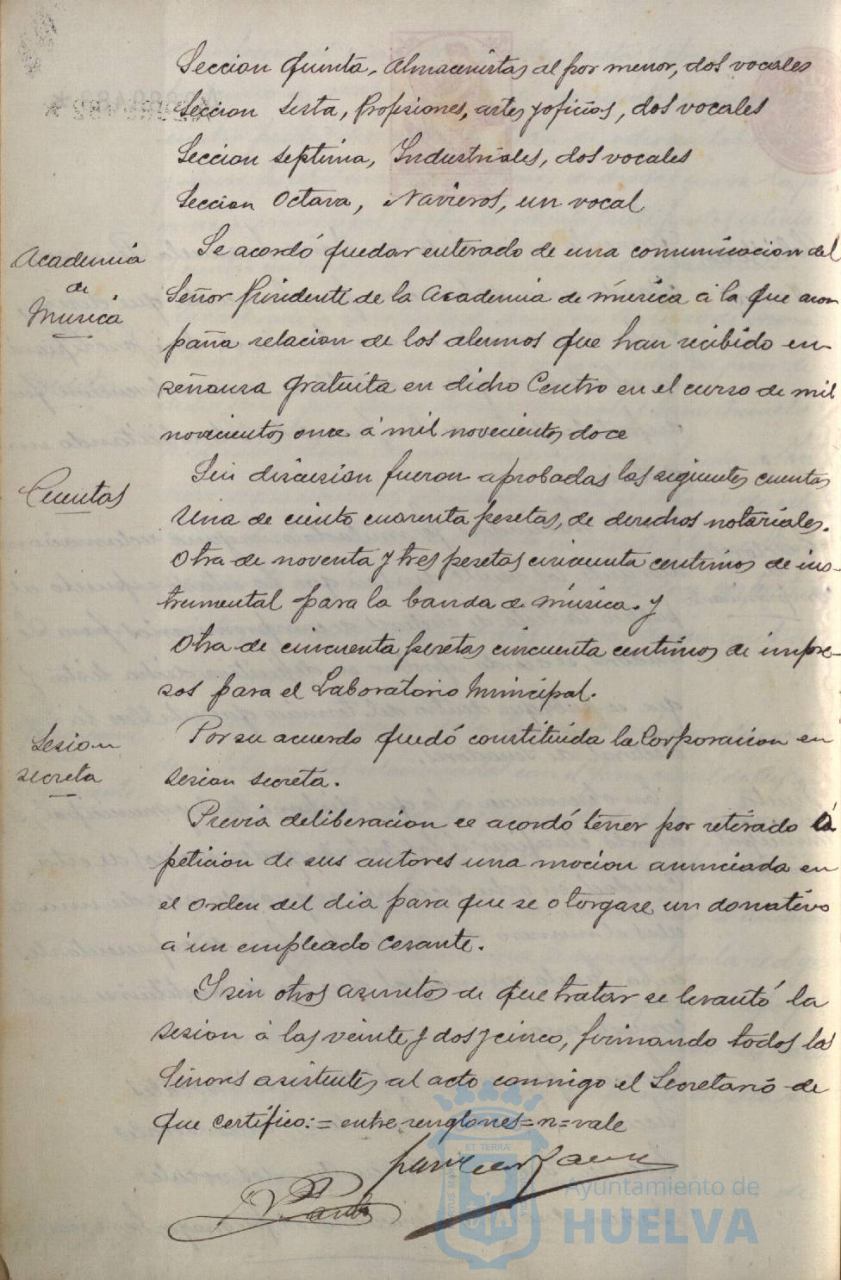 Seccion quinta, Almacenistas al por menor, dos vocales
Seccion sesta, Profisiones, artes y oficios, dos vocales
Seccion septima, Industriales, dos vocales
Seccion Octava, Navieros, un vocal
Academia
de
Musica
Se acordó quedar enterado de una comunicacion del
Señor Presidente de la Academia de música á la que acom
paña relacion de los alumnos que han recibido en-
señansa gratuita en dicho Centro en el curso de mil
novecientos once á mil novecientos doce
Cuentas
Sin discusion fueron aprobadas las siguientes cuentas
Una de ciento cuarenta pesetas, de derechos notariales.
Otra de noventa y tres pesetas cincuenta centimos de ins-
trumental para la banda de música. y
Otra de cincuenta pesetas cincuenta centimos de impre-
sos para el Laboratorio Municipal.
Sesion
secreta
Por su acuerdo quedó constituida la Corporacion en
sesion secreta.
Previa deliberacion se acordó tener por retirado á
peticion de sus autores una mocion anunciada en
el orden del dia para que se otorgase un donativo
á un empleado cesante.
Y sin otros asuntos de que tratar se levantó la
sesion á las veinte y dos y cinco, firmando todos los
Señores asistentes al acto conmigo el Secretario de
que certifico:= entre renglones=n=vale
ET TERRA
Ayuntamiento de
HUELVA